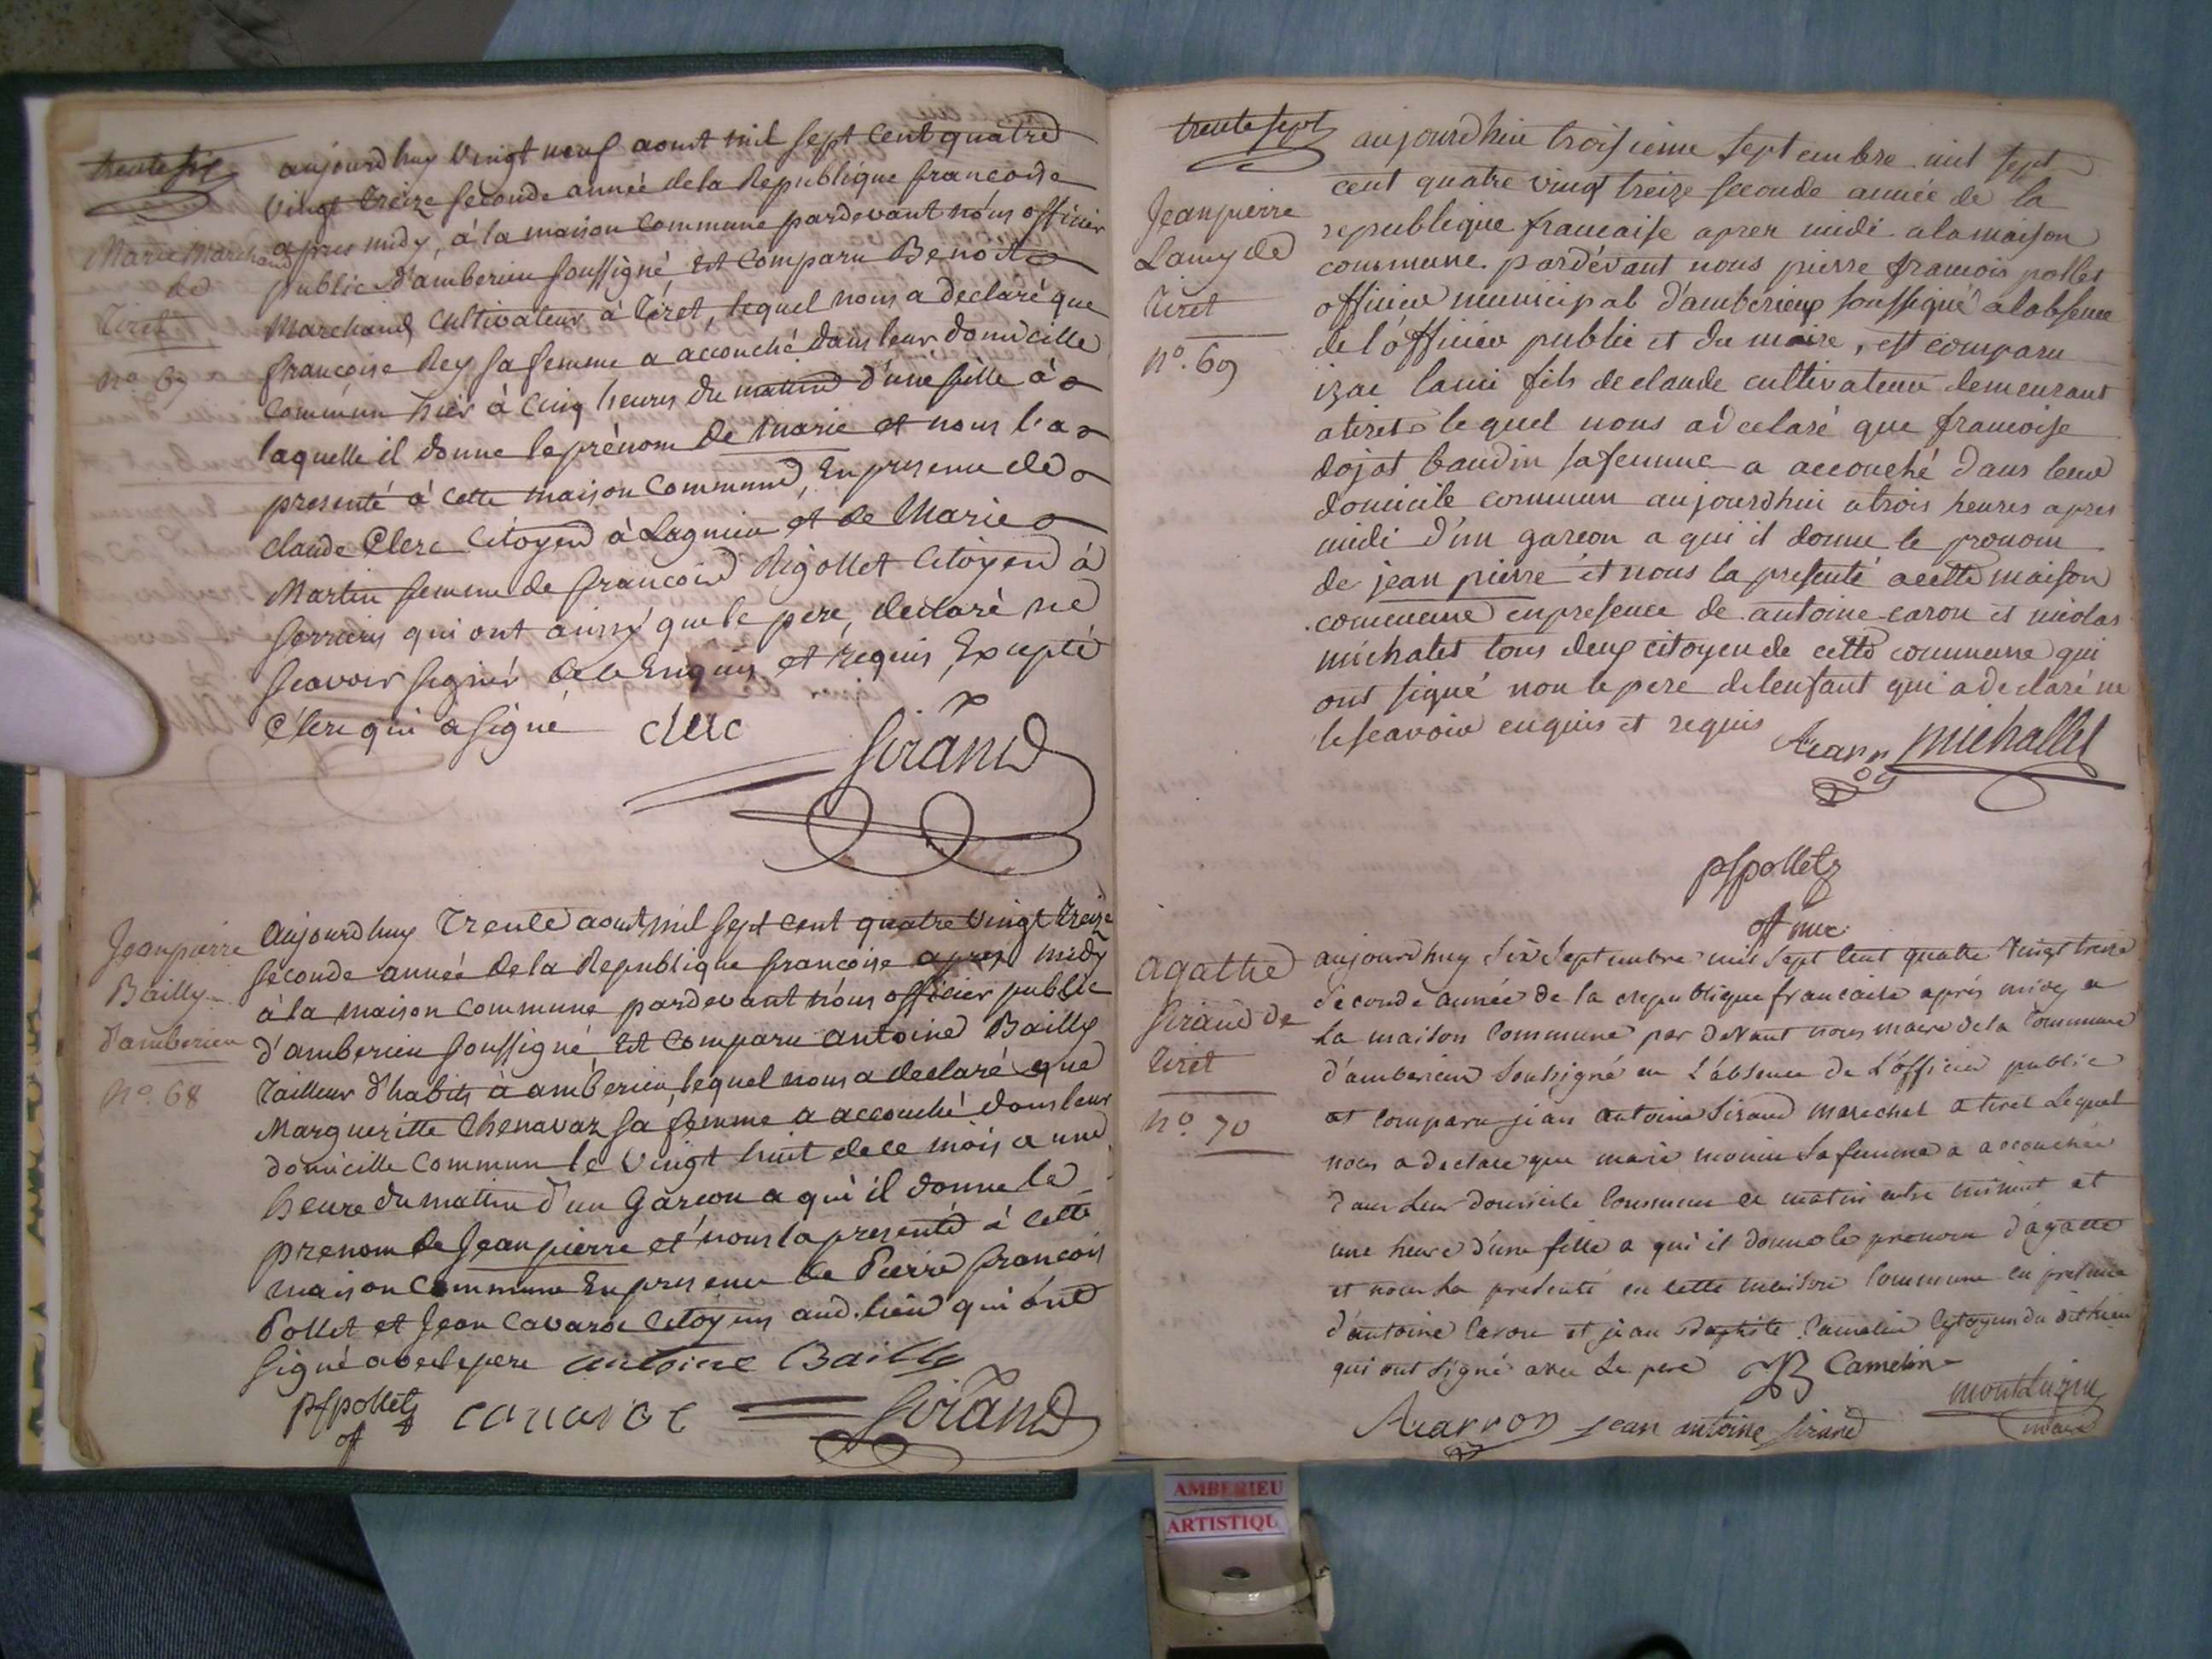 trente six
Marie Marchand
de
Tiret
n.º 67
aujourdhuy vingt neuf aoust mil sept cent quatre
vingt treize séconde année de la Republique francoise
apres midy, à la maison commune pardevant nous officier
public d'amberieu soussigné, Est comparu Benoit
Marchand cultivateur à Tiret, lequel nous a declaré que
francoise Rey sa femme a accouché dans leur domicille
commun hier à cinq heures du matin d'une fille à
laquelle il donne le prénom de Marie et nous l'a
presenté à cette maison commune, En presence de
claude Clerc citoyen à Lagnieu et de Marie
Martin femme de francois Rigollet citoyen à
qui ont aussy que le pere, declaré ne
scavoir signér de ce Enquis et requis, Excepté
Clerc qui a signé clerc
Sirand
Jeanpierre
Bailly
d'amberieu
n.º 68
aujourdhuy Trente aoust mil sept cent quatre vingt treize
séconde année de la Republique francoise apres midy
à la maison commune pardevant nous officier public
d'amberieu soussigné, Est comparu antoine Bailly
Tailleur d'habits à amberieu, lequel nous a declaré que
Margueritte Chenavaz sa femme a accouché dans leur
domicille commun le vingt huit de ce mois a une
heure du matin d'un Garcon a qui il donne le
prenom de Jeanpierre et nous la presenté à cette
maison commune En presence de Pierre francois
Pollet et Jean Cavard citoyens aud. lieu qui ont
signé avec le pere antoine Bailly
pfpolletz
of
Sirand
trente sept
Jeanpierre
Lamy de
tiret
n.º 69
aujourdhui troisieme septembre mil sept
cent quatre vingt treize seconde année de la
republique francaise apres midi a la maison
commune pardévant nous pierre francois pollet
officier municipal d'amberieux soussigné a labsence
de l'officier public et du maire, est comparu
izac lami fils de claude cultivateur demeurant
a tiret lequel nous a declaré que francoise
dojat baudin sa femme a accouché dans leur
domicile commun aujourdhui a trois heures apres
midi d'un garcon a qui il donne le pronom
de jean pierre et nous la presenté a cette maison
commune en presence de antoine caron et nicolas
michalet tous deux citoyen de cette commune qui
ont signé non le pere de lenfant qui a declaré ne
le scavoir enquis et requis
michallet
pfpolletz
off mu:
agathe
Sirand de
tiret
n.º 70
aujourdhuy six septembre mil sept cent quatre vingt treize
seconde année de la republique francaise après midy a
la maison commune par devant nous maire de la commune
d'amberieu soussigné en l'absence de l'officier public
est comparu jean antoine Sirand marechal a tiret lequel
nous a declare que marie monin sa femme a accouchée
dans leur domicile commun ce matin entre minuit et
une heure d'une fille a qui il donne le prenom d'agatte
et nous la presenté en cette maison commune en presence
d'antoine caron et jean Baptiste Camelin cytoyen du dit lieu
qui ont signé avec le pere JB Camelin
Acarron jean antoine sirand
montluzin
maire
AMBERIEU
ARTISTIQU